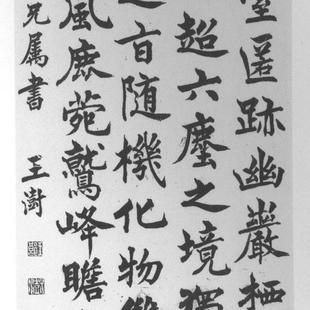 室匿跡幽巖栖
超六塵之境獨
之旨随機化物
風鹿菀鷲峰瞻
兄属書 王澍